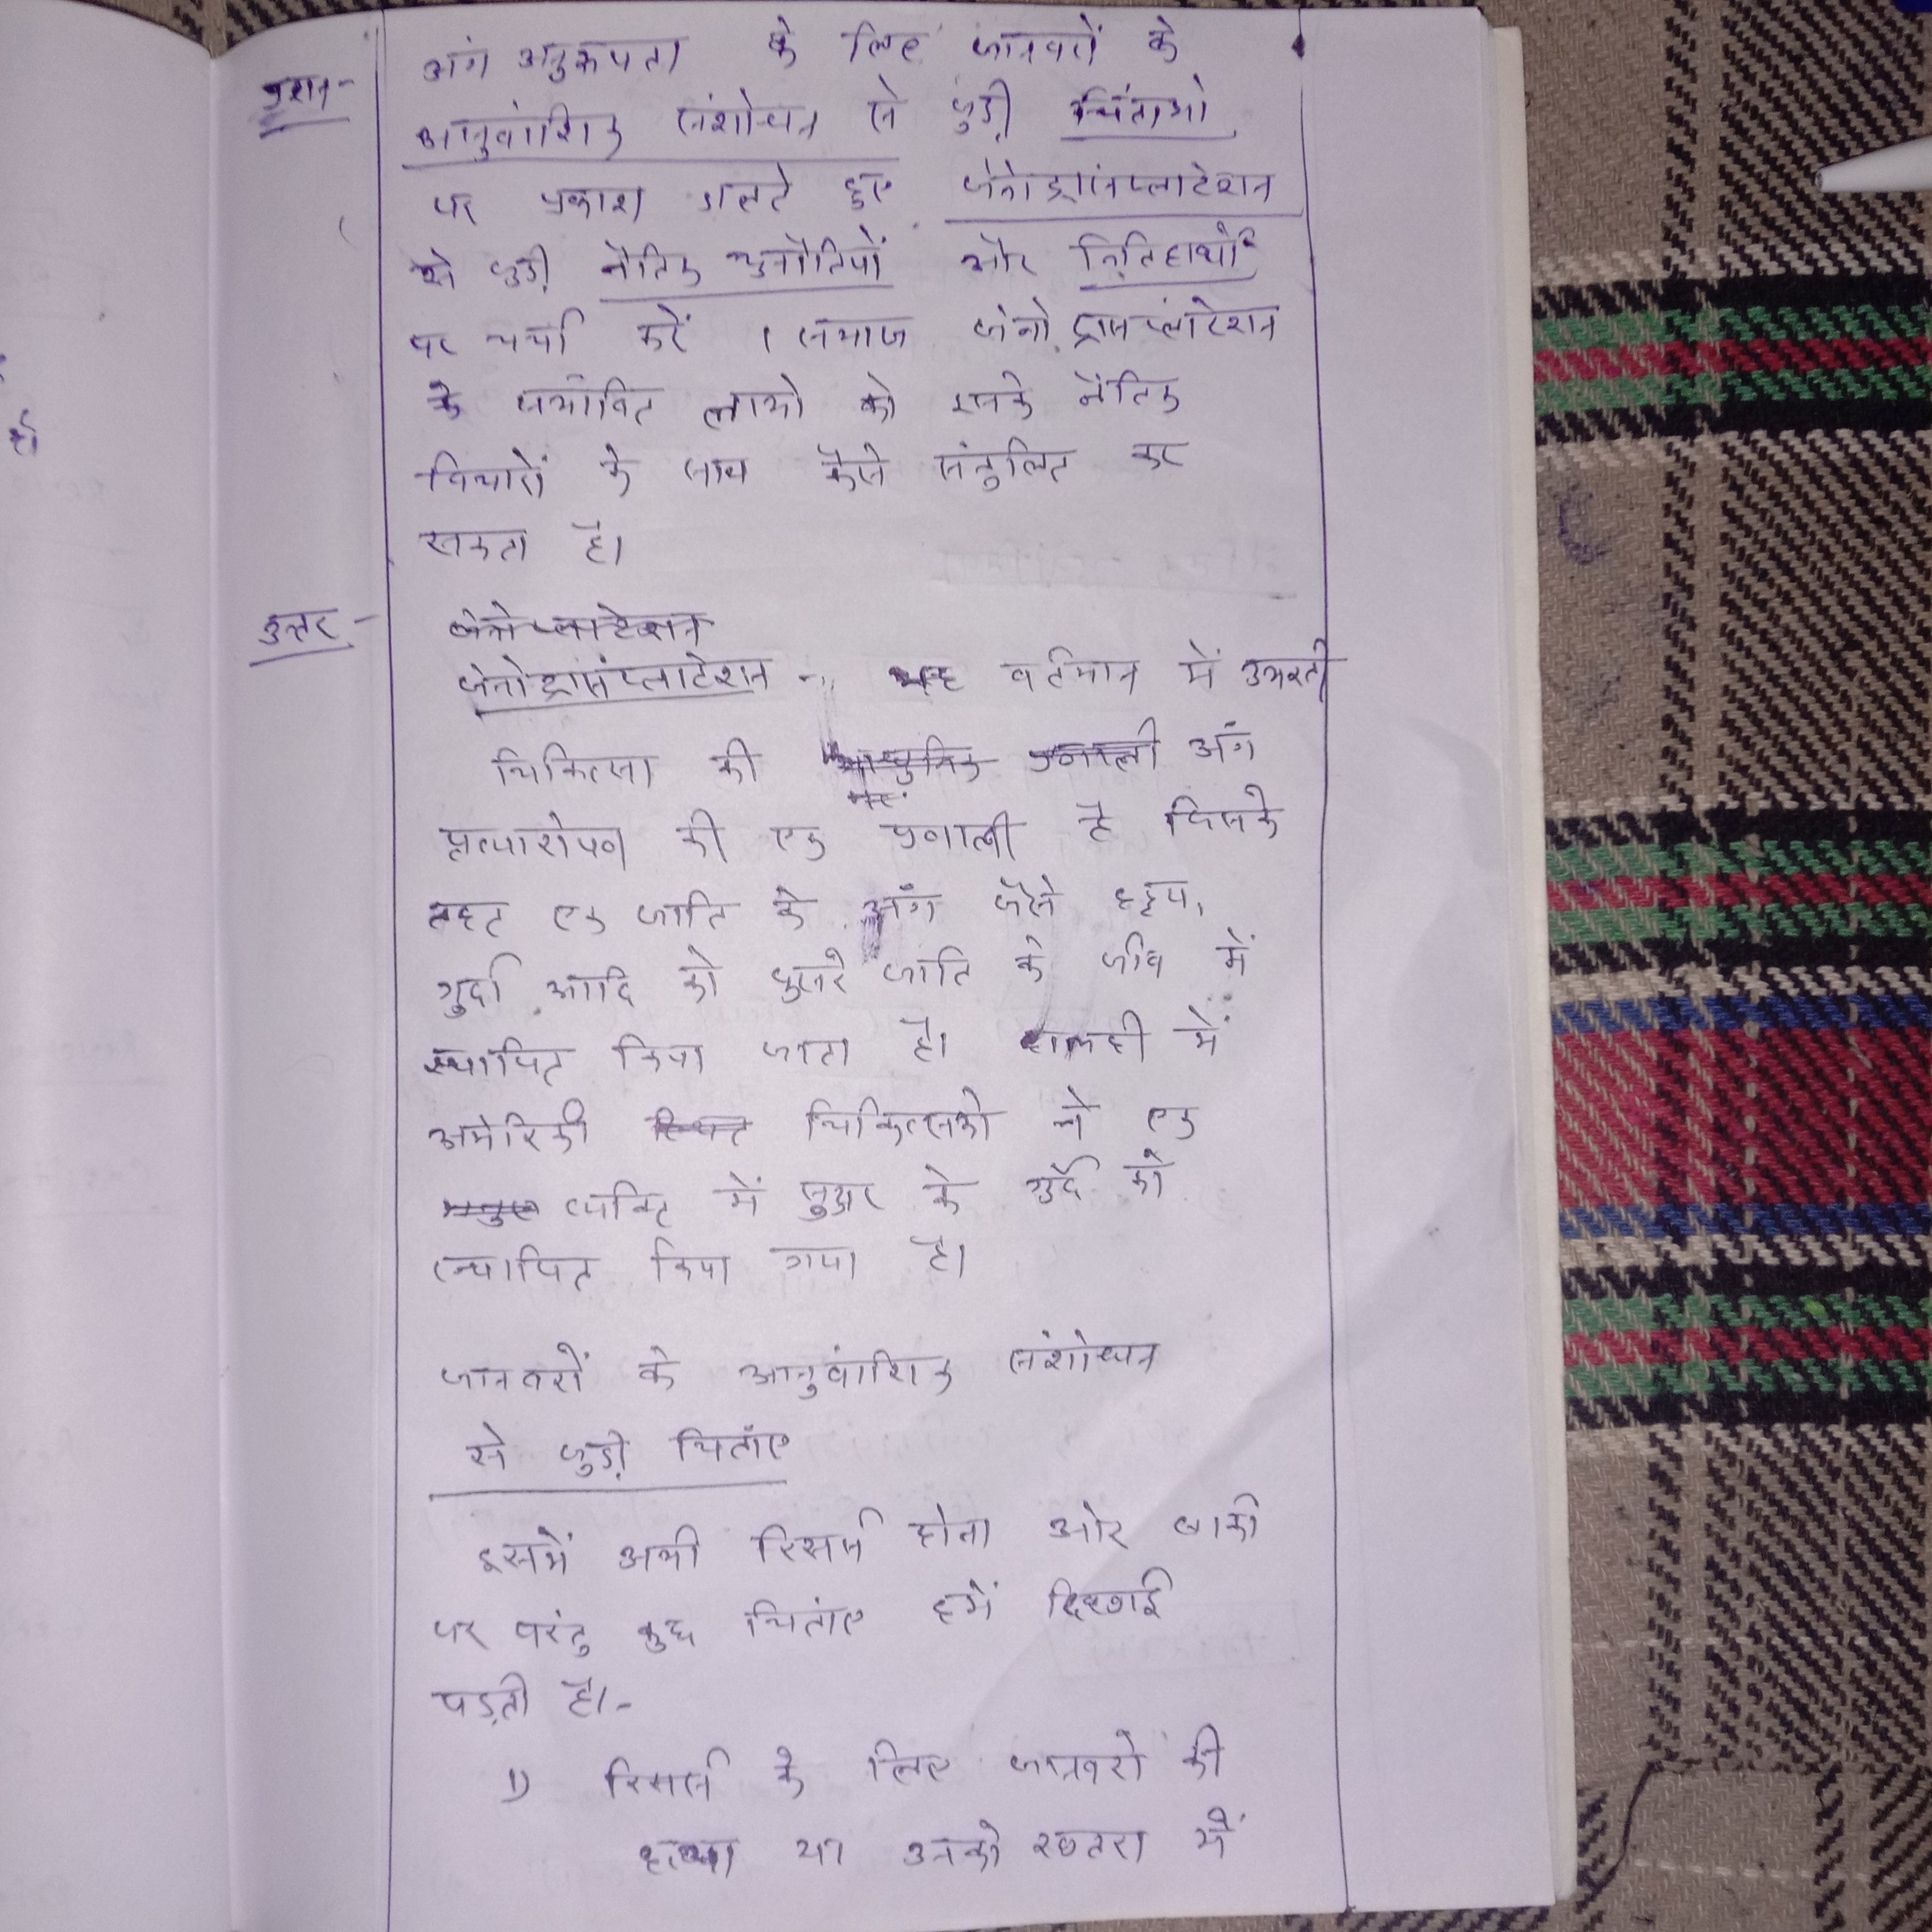 प्रश्न- अंग अनुरूपता के लिए जानवरों के
आनुवांशिक संशोधन से जुड़ी चिंताओं
पर प्रकाश डालते हुए जेनोट्रांसप्लांटेशन
से जुड़ी नैतिक चुनौतियों और निहितार्थो
पर चर्चा करें । समाज जेनोट्रांसप्लांटेशन
के संभावित लाभो को इसके नैतिक
विचारों के साथ कैसे संतुलित कर
सकता है।
उत्तर- जेनोप्लाटेशन
जेनोट्रांसप्लाटेशन - यह वर्तमान में उभरती
चिकित्सा की आधुनिक प्रणाली अंग
प्रत्यारोपण की एक प्रणाली है जिसके
तहत एक जाति के अंग जैसे हृदय,
गुर्दा आदि को दुसरे जाति के जीव में
स्थापित किया जाता है। हालही में
अमेरिकी चिकित्सको ने एक
मनुष्य व्यक्ति में सुअर के गुर्दे को
स्थापित किया गया है।
जानवरों के आनुवांशिक संशोधन
से जुड़ी चिताँए
इसमें अभी रिसर्च होना और बाकी
पर परंतु कुछ चितांए हमें दिखाई
पड़ती है।-
1) रिसर्च के लिए जानवरो की
हत्या या उनको खतरा में